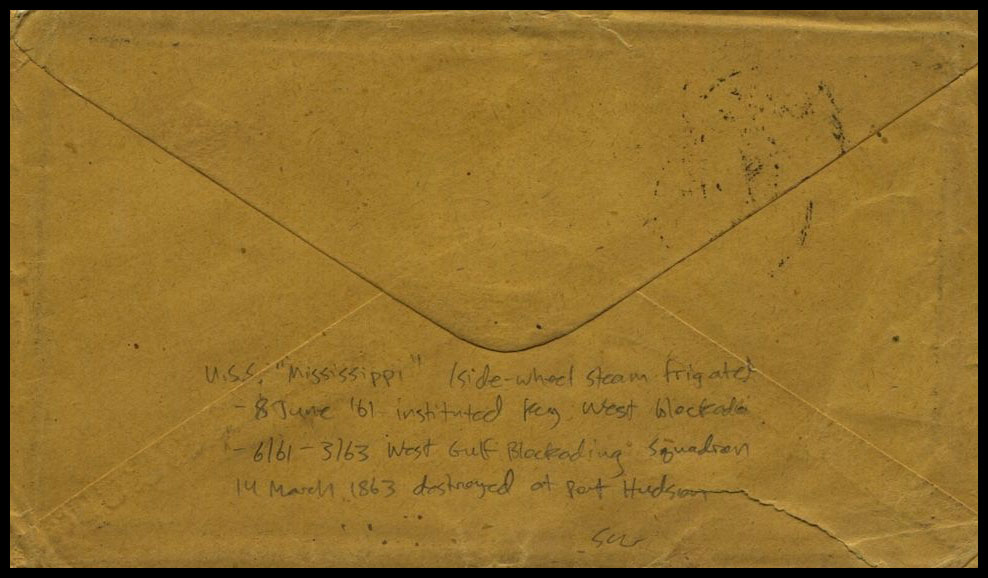 U.S.S. "Mississippi" (side-wheel steam frigate)
- 8 June '61 instituted Key West blockade
- 6/61 - 3/63 West Gulf Blockading Squadron
14 March 1863 destroyed at Port Hudson